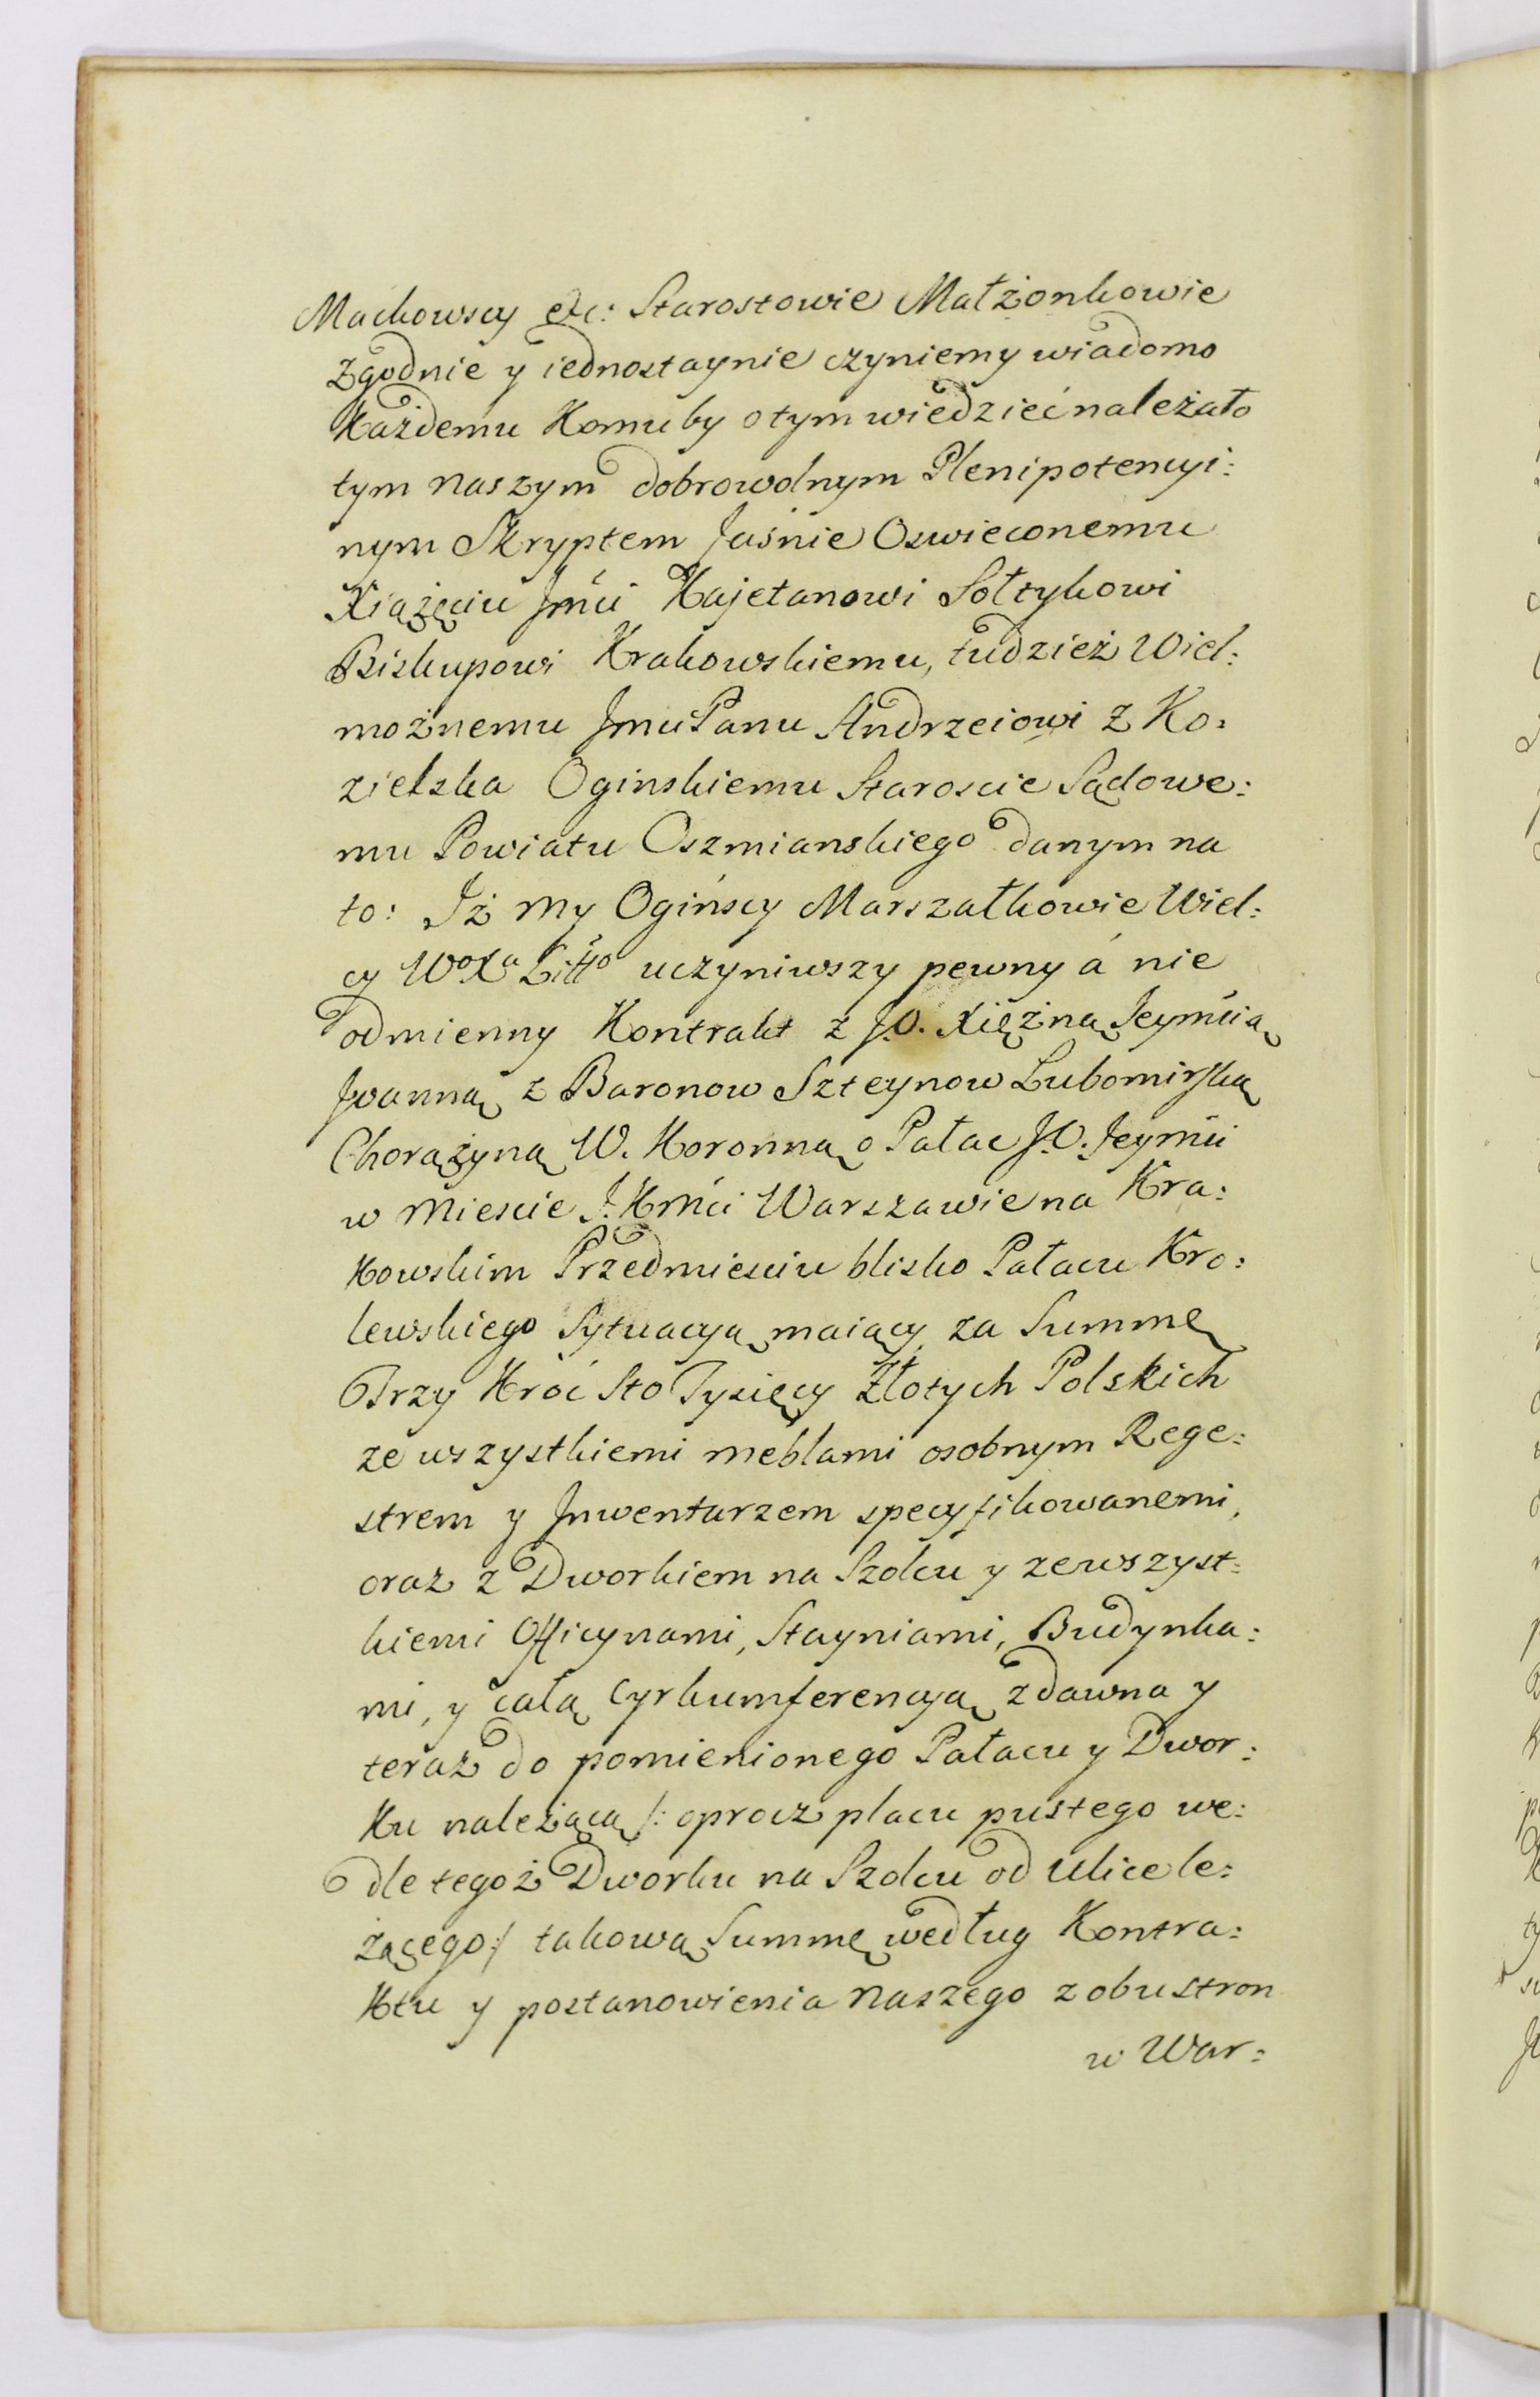 Machowscy etc: Starostowie Małżonkowie
Zgodnie y iednostaynie czyniemy wiadomo
Każdemu Komu by o tym wiedzieć należało
tym naszym dobrowolnym Plenipotencyi:
nym Skryptem Jaśnie Oswieconemu
Xiążęciu Jmći Kajetanowi Sołtykowi
Biskupowi Krakowskiemu, tudzież Wiel:
możnemu Jmu Panu Andrzeiowi z Ko:
zielska Oginskiemu Staroscie Sądowe:
mu Powiatu Oszmianskiego danym na
to: Iż my Ogińscy Marszałkowie Wiel:
cy WoXa Litto uczyniwszy pewny á nie
odmienny Kontrakt z J.O. Xiężną Jeymćią
Joanną z Baronow Szteynow Lubomirską
Chorążyną W. Koronną o Pałac J.O. Jeymći
w Miescie J. K Mći Warszawie na Kra:
kowskim Przedmiesciu blisko Pałacu Kro:
lewskiego Sytuacyą maiący za Summę
Trzy Kroć Sto Tysięcy Złotych Polskich
ze wszystkiemi meblami osobnym Rege:
strem y Inwentarzem specyfikowanemi,
oraz z Dworkiem na Szolcu y ze wszyst:
kiemi Officynami, Stayniami, Budynka:
mi, y całą Cyrkumferencyą z dawna y
teraz do pomienionego Pałacu y Dwor:
ku należącą /: oprocz placu pustego we:
dle tegoż Dworku na Szolcu od Ulice le:
żącego :/ takową Summę według Kontra:
ktu y postanowienia naszego z obu stron
w War: